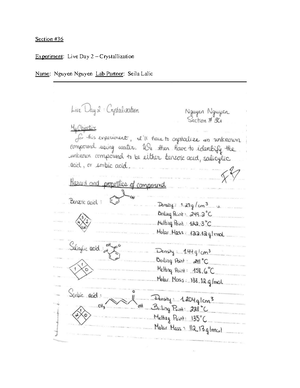 Section #36
Experiment: Live Day 2 – Crystallization
Name: Nguyen Nguyen Lab Partner: Seila Lalic
Live Day 2: Crystallization
Nguyen Nguyen
Section # 36
My Objective
In this experiment, it's how to crystallize an unknown
compound using water. We then have to identify the
unknown compound to be either benzoic acid, salicylic
acid, or sorbic acid.
Hazard and properties of compounds
Benzoic acid :
Density : g/cm³
Boiling Point : 249.2°C
Melting Point : °C
Molar Mass : g/mol
Salicylic acid :
Density : 1.44 g/cm³
Boiling Point : 211°C
Melting Point : 158.6°C
Molar Mass : g/mol
Sorbic acid :
CH₃
OH
Density : 1.204 g/cm³
Boiling Point : 228°C
Melting Point : 135°C
Molar Mass : g/mol